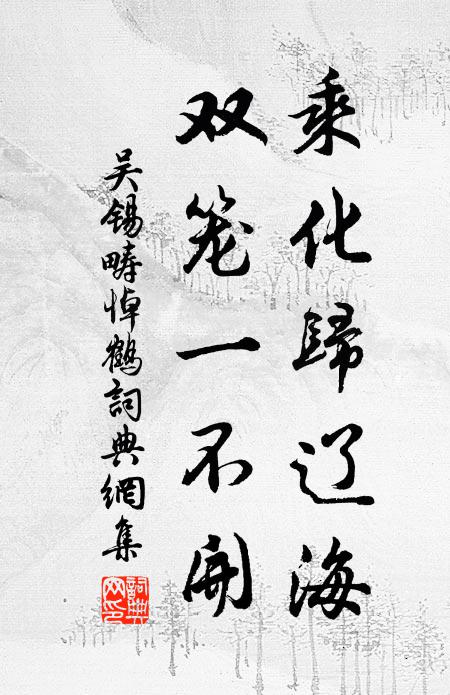 乘化歸辽海
双笼一不开
吴锡畴悼鶴詞典網集
詞典